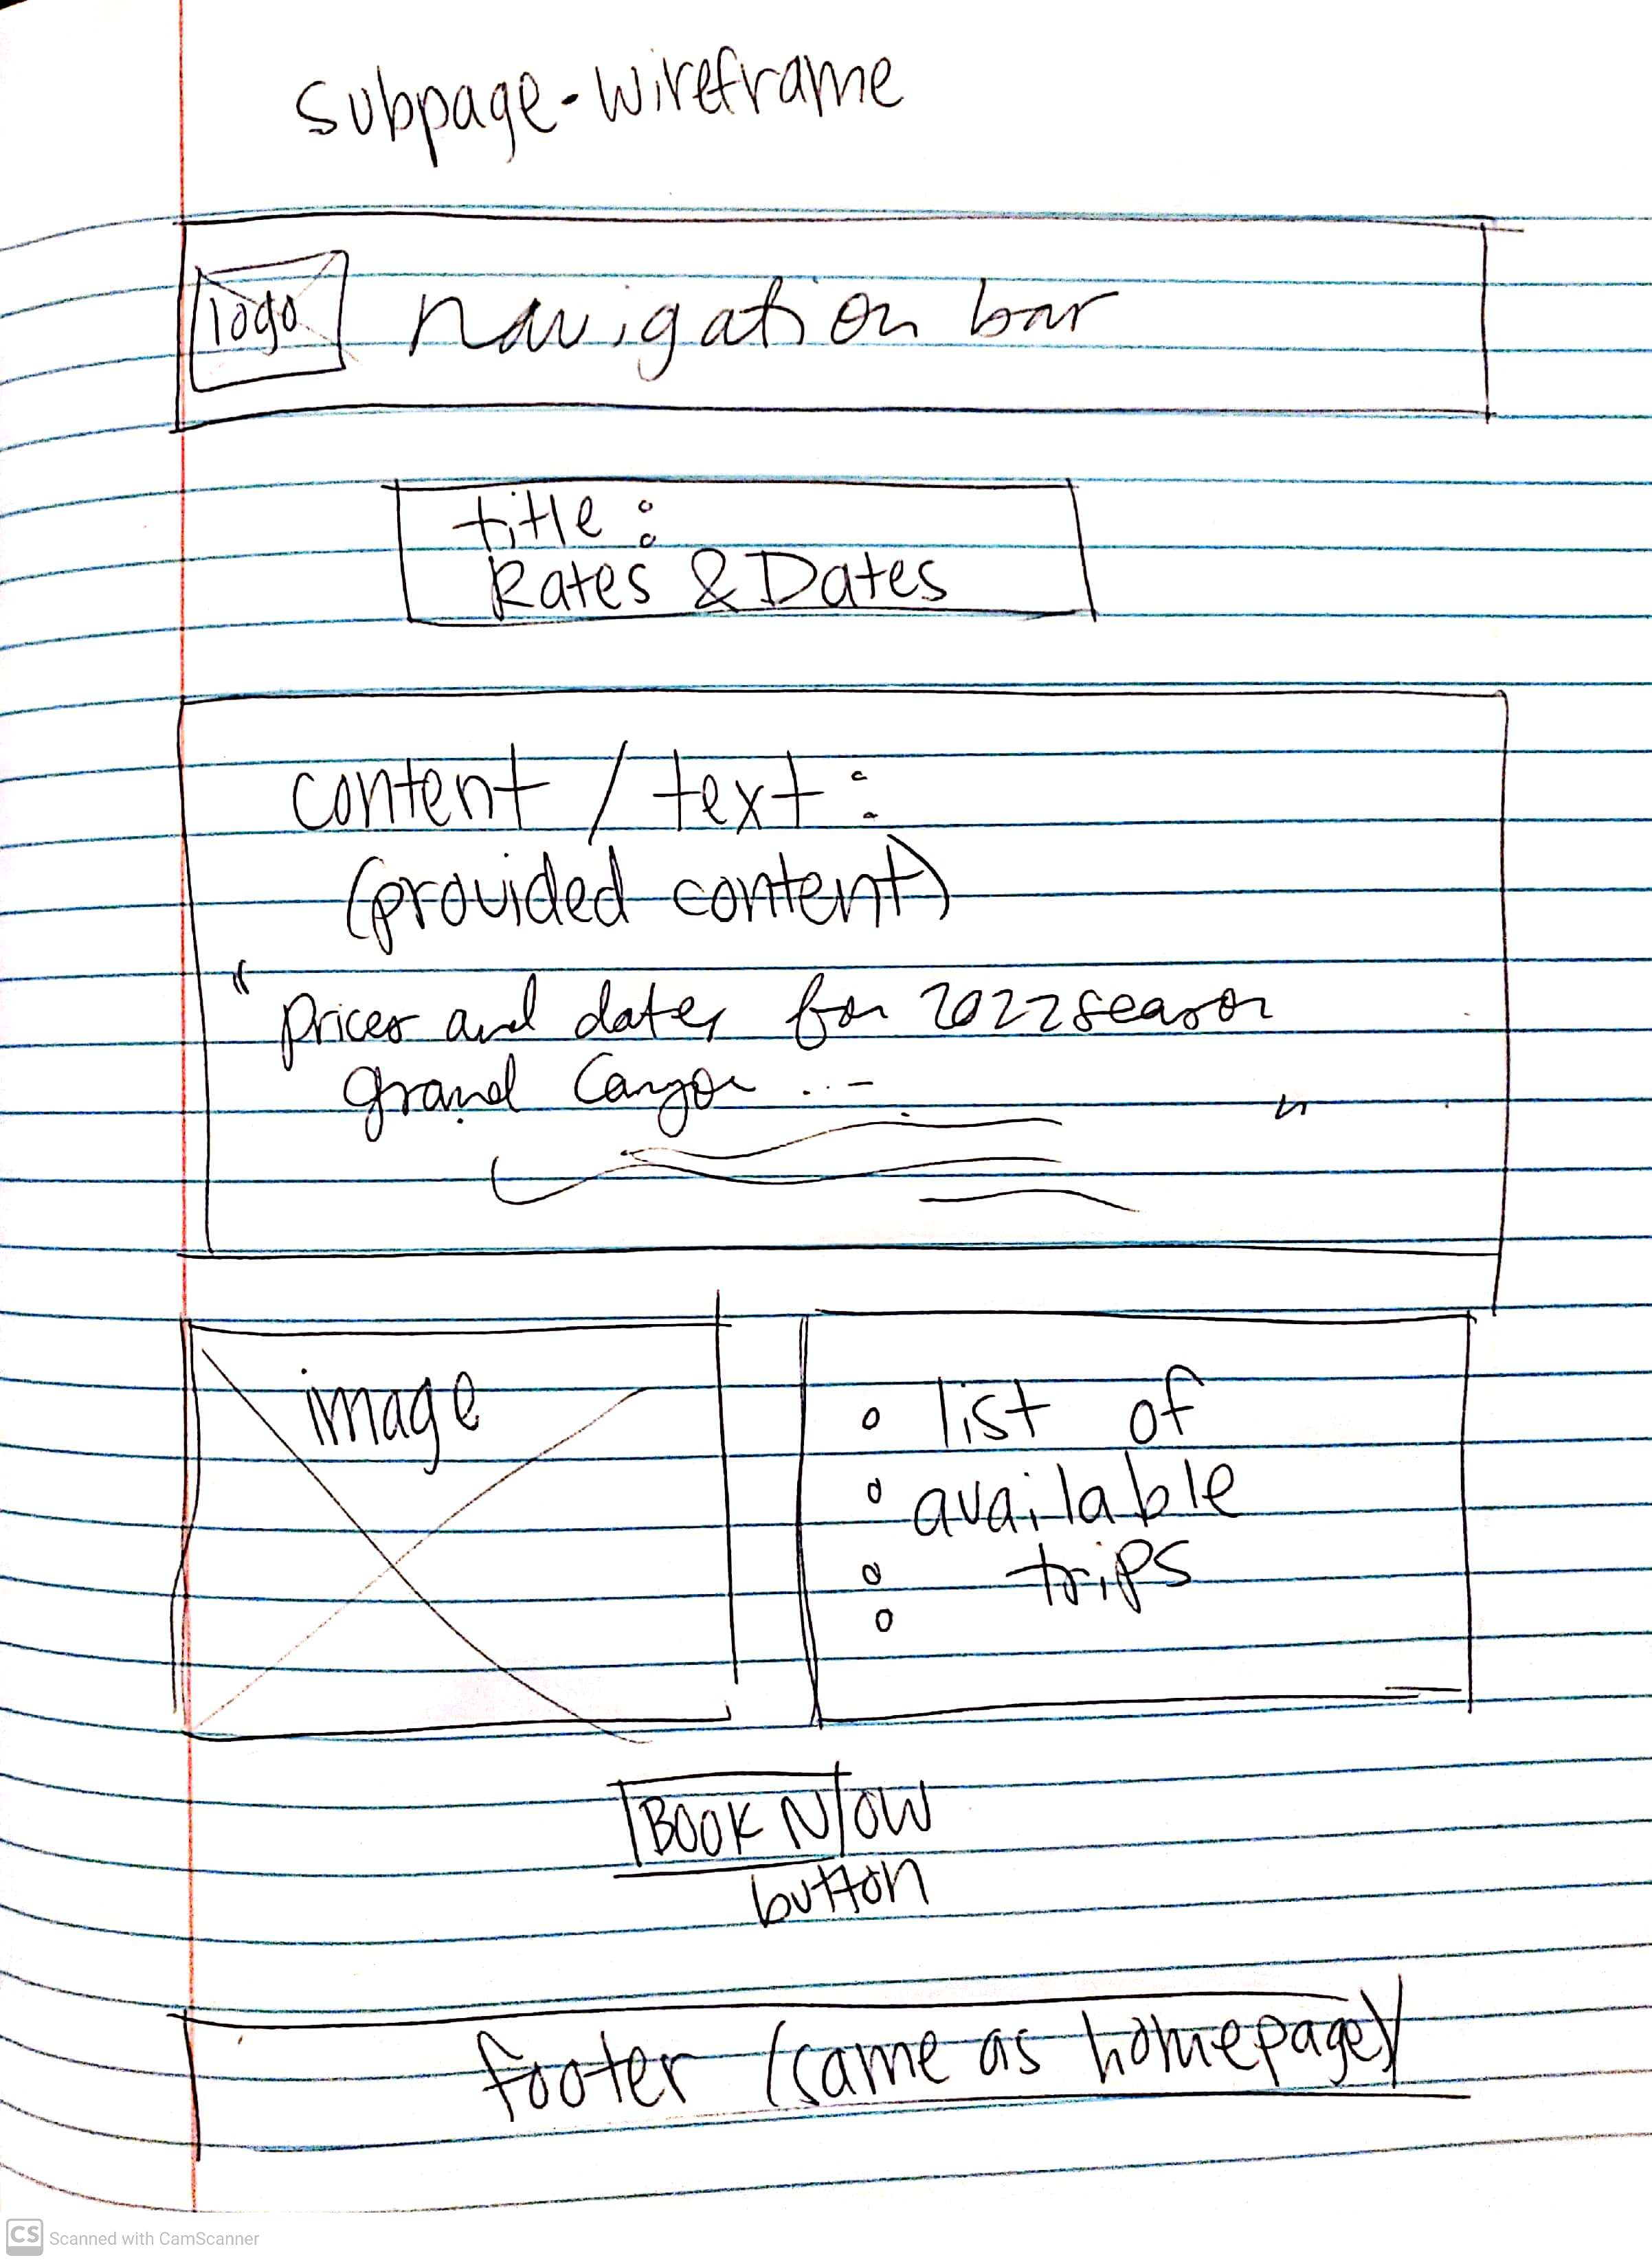 subpage-wireframe
logo navigation bar
title:
Rates & Dates
content / text:
(provided content)
" prices and dates for 2022 season
grand Canyon ... "
image
list of
available
trips
BOOK NOW
button
footer (same as homepage)
CS Scanned with CamScanner